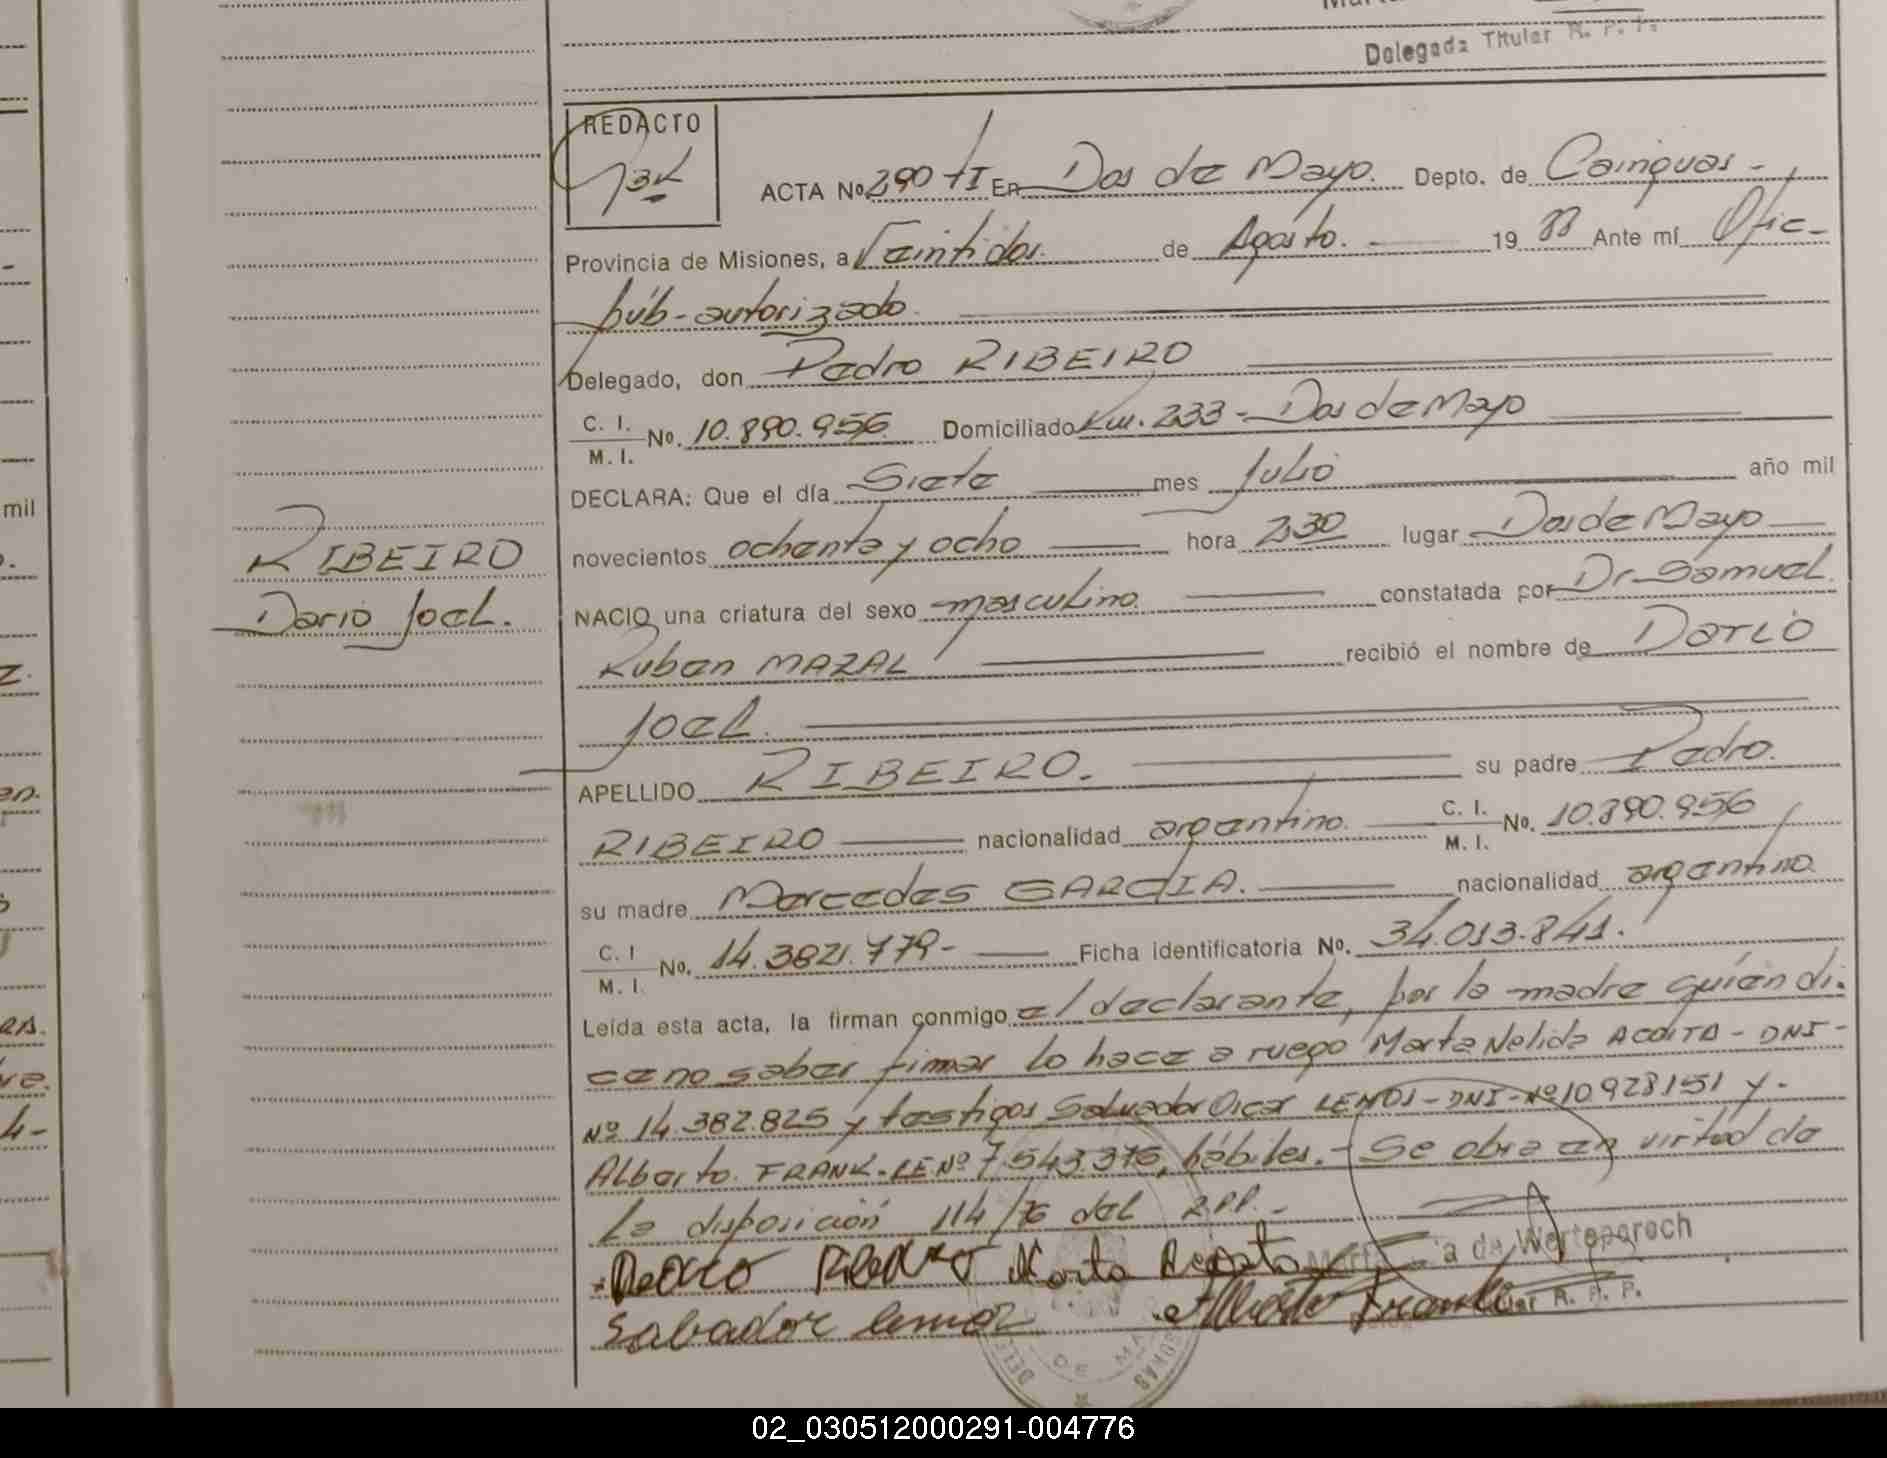 Delegada Titular R. P. P.
REDACTO
ACTA Nº 290 tI En Dos de Mayo. Depto. de Cainguas -
Provincia de Misiones, a Veintidos. de Agosto. - 19 88 Ante mí Ofic-
púb-autorizado
Delegado, don Pedro RIBEIRO
C. I.
M. I. No. 10.890.956 Domiciliado Km. 233 - Dos de Mayo
DECLARA: Que el día Siete mes Julio año mil
novecientos ochenta y ocho hora 2,30 lugar Dos de Mayo
RIBEIRO
Dario Joel.
NACIO una criatura del sexo masculino. constatada por Dr. Samuel
Ruben MAZAL recibió el nombre de Dario
Joel.
APELLIDO RIBEIRO. su padre Pedro.
RIBEIRO nacionalidad argentino. C. I.
M. I. No. 10.890.956
su madre Mercedes GARCIA. nacionalidad argentina
C. I
M. I. No. 14.3821.779- Ficha identificatoria No. 34.013.841.
Leída esta acta, la firman conmigo el declarante, por la madre quién di-
ce no saber firmar lo hace a ruego Marta Nelida ACOSTA - DNI-
Nº 14.382.825 y testigos Salvador Oscar LEMOS - DNI - Nº 10928151 y.
Alberto. FRANK - LE Nº 7.543.376, hábiles.- Se obra en virtud de
La disposición 114/76 del RPP.-
Pedro Ribeiro Marta Acosta
de Werteparech
Salbador lemos Alberto Frank
R. P. P.
02_030512000291-004776